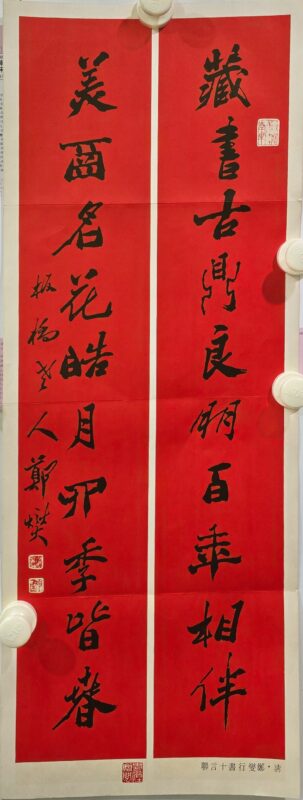 藏書古鼎良朋百年相伴
美酉名花皓月四季皆春
板橋老人鄭燮
清·鄭燮行書十言聯